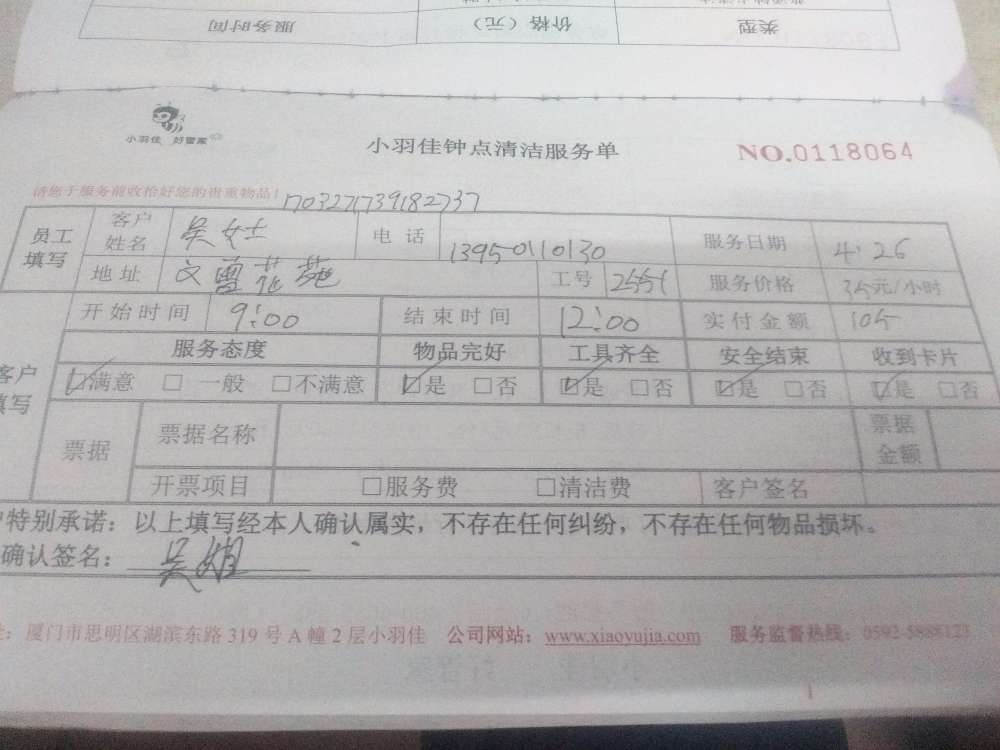 类型 价格（元） 服务时间
小羽佳 好管家
小羽佳钟点清洁服务单 NO.0118064
请您于服务前收拾好您的贵重物品！ 1703271739182737
员工填写 客户姓名 吴女士 电话 13950110130 服务日期 4.26
地址 文曾花苑 工号 服务价格 35元/小时
开始时间 9:00 结束时间 12:00 实付金额 105
客户填写 服务态度 物品完好 工具齐全 安全结束 收到卡片
☑满意 □一般 □不满意 ☑是 □否 ☑是 □否 ☑是 □否 ☑是 □否
票据 票据名称 票据金额
开票项目 □服务费 □清洁费 客户签名
特别承诺：以上填写经本人确认属实，不存在任何纠纷，不存在任何物品损坏。
确认签名：吴
厦门市思明区湖滨东路 319 号 A 幢 2 层小羽佳 公司网站：www.xiaoyujia.com 服务监督热线：0592-5888123